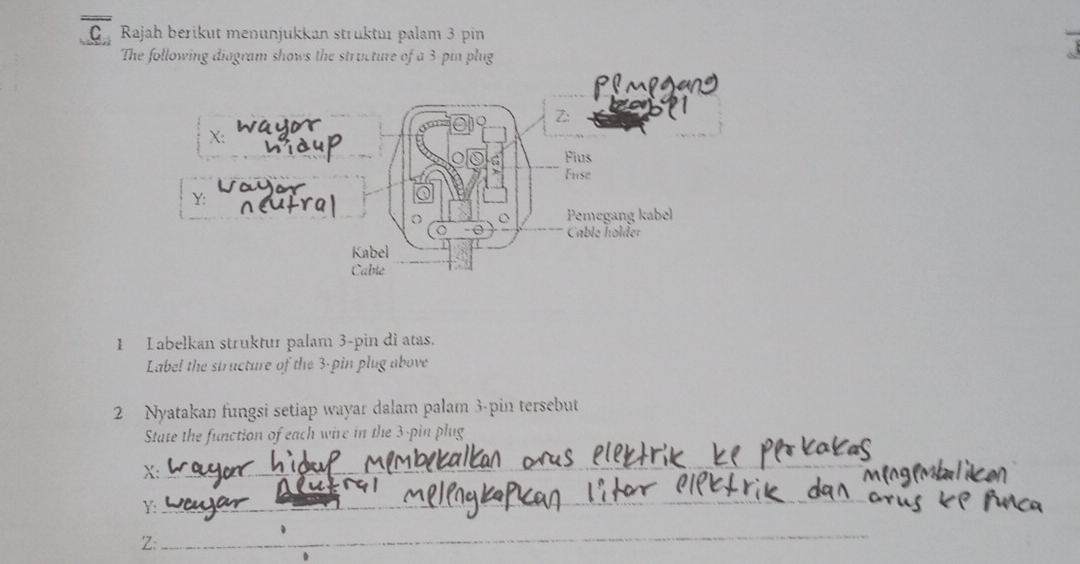 C Rajah berikut menunjukkan struktur palam 3 pin
The following diagram shows the structure of a 3-pin plug
X: wayar
hidup
Y: wayar
neutral
Z: Pemegang
kabel
13 A
Fius
Fuse
Pemegang kabel
Cable holder
Kabel
Cable
1 Labelkan struktur palam 3-pin di atas.
Label the structure of the 3-pin plug above
2 Nyatakan fungsi setiap wayar dalam palam 3-pin tersebut
State the function of each wire in the 3-pin plug
X: wayar hidup membekalkan arus elektrik ke perkakas
Y: wayar neutral melengkapkan litar elektrik dan mengembalikan
arus ke punca
Z: